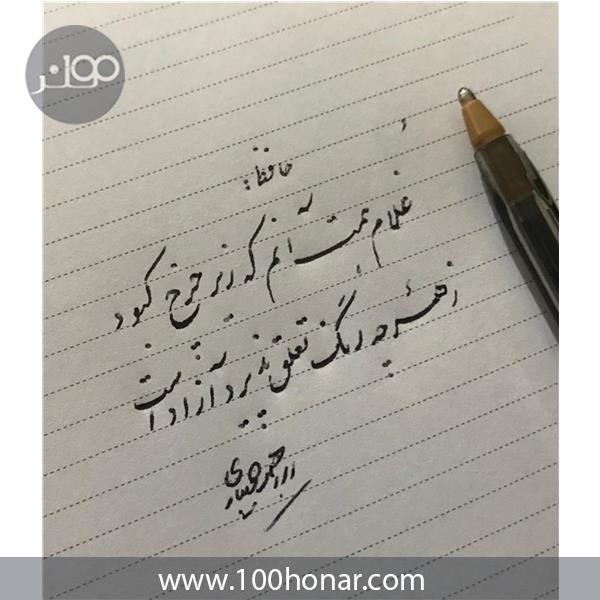 صد هنر
حافظ:
غلام همت آنم که زیر چرخ کبود
ز هر چه رنگ تعلق پذیرد آزاد است
www.100honar.com